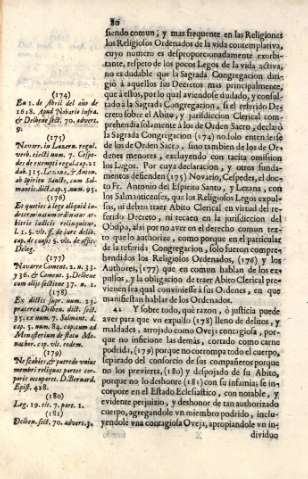 80
(174)
En 2. de Abril del año de
1618. Apud Novario supra,
& Delbene sect. 70. advert.
9.
(175)
Novar. in Lucern. regul.
verb. eiecti num. 7. Cespe-
des de exempt. regul. cap. 21
dub. 315. Lezana, & Anton.
ab Spiritu Sancto, cum Sal-
mantic. dict. cap. 5. num. 95.
(176)
Et quoties à lege aliquid in-
determinatum ordinar. ar-
bitrio iudicis relinquitur,
(177)
Navarro Coment. 2. n. 33.
36. & Coment. 3. Delbene
cum aliis sectione 37. n. 2.
(178)
Ex dictis supr. num. 23.
praeterea Delben. dict. sect.
35. ex num. 7. Salmant. d.
cap. 5. num. 84. cap. cum ad
Monasterium de statu Mo-
nachor. cap. eodem.
(179)
Ne scabies, & putredo unius
membri reliquas partes cor-
poris occuparet. D. Bernard.
Epist. 428.
(180)
Leg. 19. tit. 7. part. 1.
(181)
Delben. sect. 70. advert. 3.
siendo comun, y mas frequente en las Religiones
los Religiosos Ordenados de la vida contemplativa,
cuyo numero es desproporcionadamente exorbi-
tante, respeto de los pocos Legos de la vida activa,
no es dudable que la Sagrada Congregacion diri-
giò à aquellos sus Decretos mas principalmente,
que à estos, por lo qual aviendose dudado, y consul-
tado à la Sagrada Congregacion, si el referido Decre-
to sobre el Abito, y jurisdiccion Clerical com-
prehendia solamente à los de Orden Sacro, declarò
la Sagrada Congregacion (174) no solo entenderse
de los de Orden Sacro, sino tambien de los de Or-
denes menores, excluyendo con tacita omision
los Legos. Por cuya declaracion, y otros funda-
mentos defienden (175) Novario, Cespedes, el doc-
to Fr. Antonio del Espiritu Santo, y Lezana, con
los Salmanticenses, que los Religiosos Legos expul-
sos, ni deben traer Abito Clerical en virtud del re-
ferido Decreto, ni recaen en la jurisdiccion del
Obispo, assi por no aver en el derecho comun tex-
to que lo authorize, como porque en el particular
de la referida Congregacion, solo fueron compre-
hendidos los Religiosos Ordenados, (176) y los
Authores, (177) que en comun hablan de los ex-
pulsos, y la obligacion de traer Abito Clerical pre-
vienen sea qual conviniente à sus Ordenes, en que
manifiestan hablar de los Ordenados.
42 Y sobre todo, què razon, ò justicia puede
aver para que vn expulso (178) lleno de delitos, y
maldades, arrojado como Oveja contagiosa, por-
que no inficione las demàs, cortado como carne
podrida, (179) porque no corrompa todo el cuerpo,
separado del consorcio de sus compañeros porque
no los pervierta, (180) y despojado de su Abito,
porque no lo deshonre (181) con su infamia; se in-
corpore en el Estado Eclesiastico, con notable, y
evidente perjuizio, y deshonor de tan authorizado
cuerpo, agregandole vn miembro podrido, inclu-
yendole vna contagiosa Oveja, apropiandole vn in-
dividuo